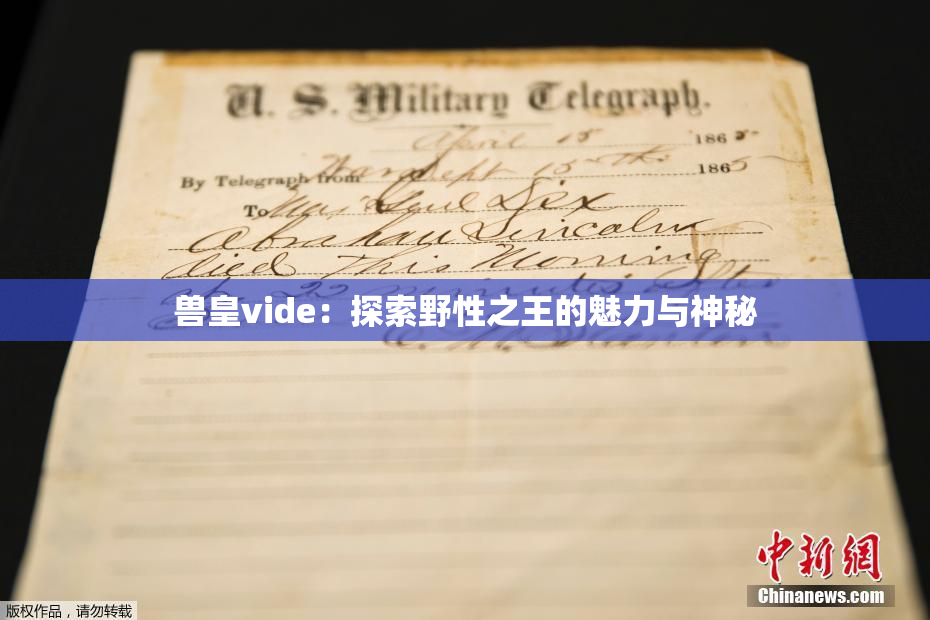 U. S. Military Telegraph.
April 15 1865
By Telegraph from War Dept 15th 1865
To Maj Genl Dix
Abraham Lincoln
died This Morning
at 22 minutes after
兽皇vide：探索野性之王的魅力与神秘
E. M. Stanton
中新网
Chinanews.com
版权作品，请勿转载